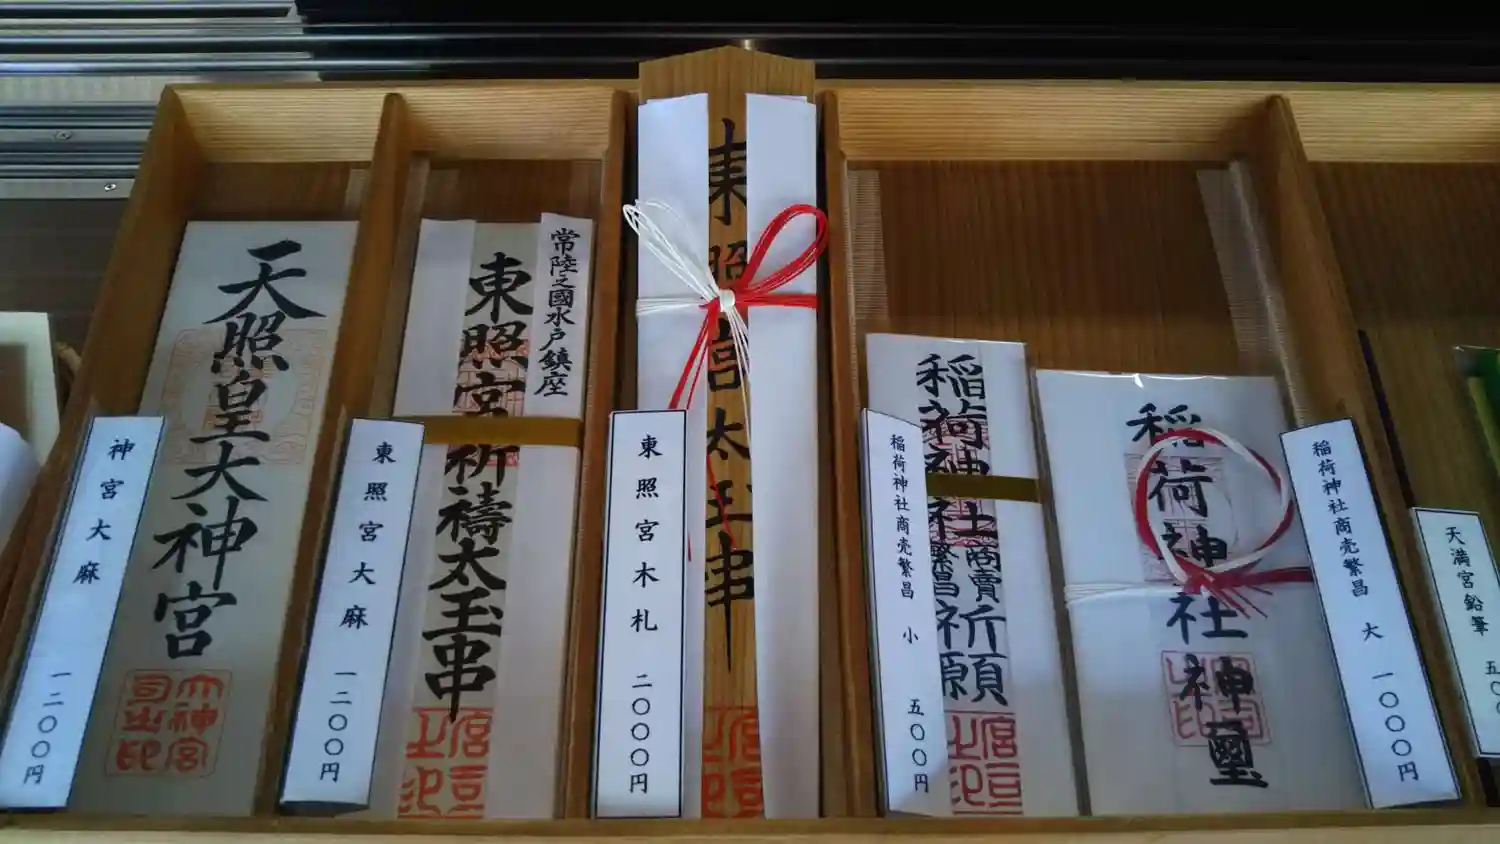 神宮大麻 一二〇〇円
天照皇大神宮
大神宮司之印
東照宮大麻 一二〇〇円
常陸之國水戸鎮座
東照宮祈禱太玉串
東照宮木札 二〇〇〇円
東照宮太玉串
稲荷神社商売繁昌 小 五〇〇円
稲荷神社
商賣繁昌祈願
稲荷神社神璽
稲荷神社商売繁昌 大 一〇〇〇円
天満宮鉛筆 五〇